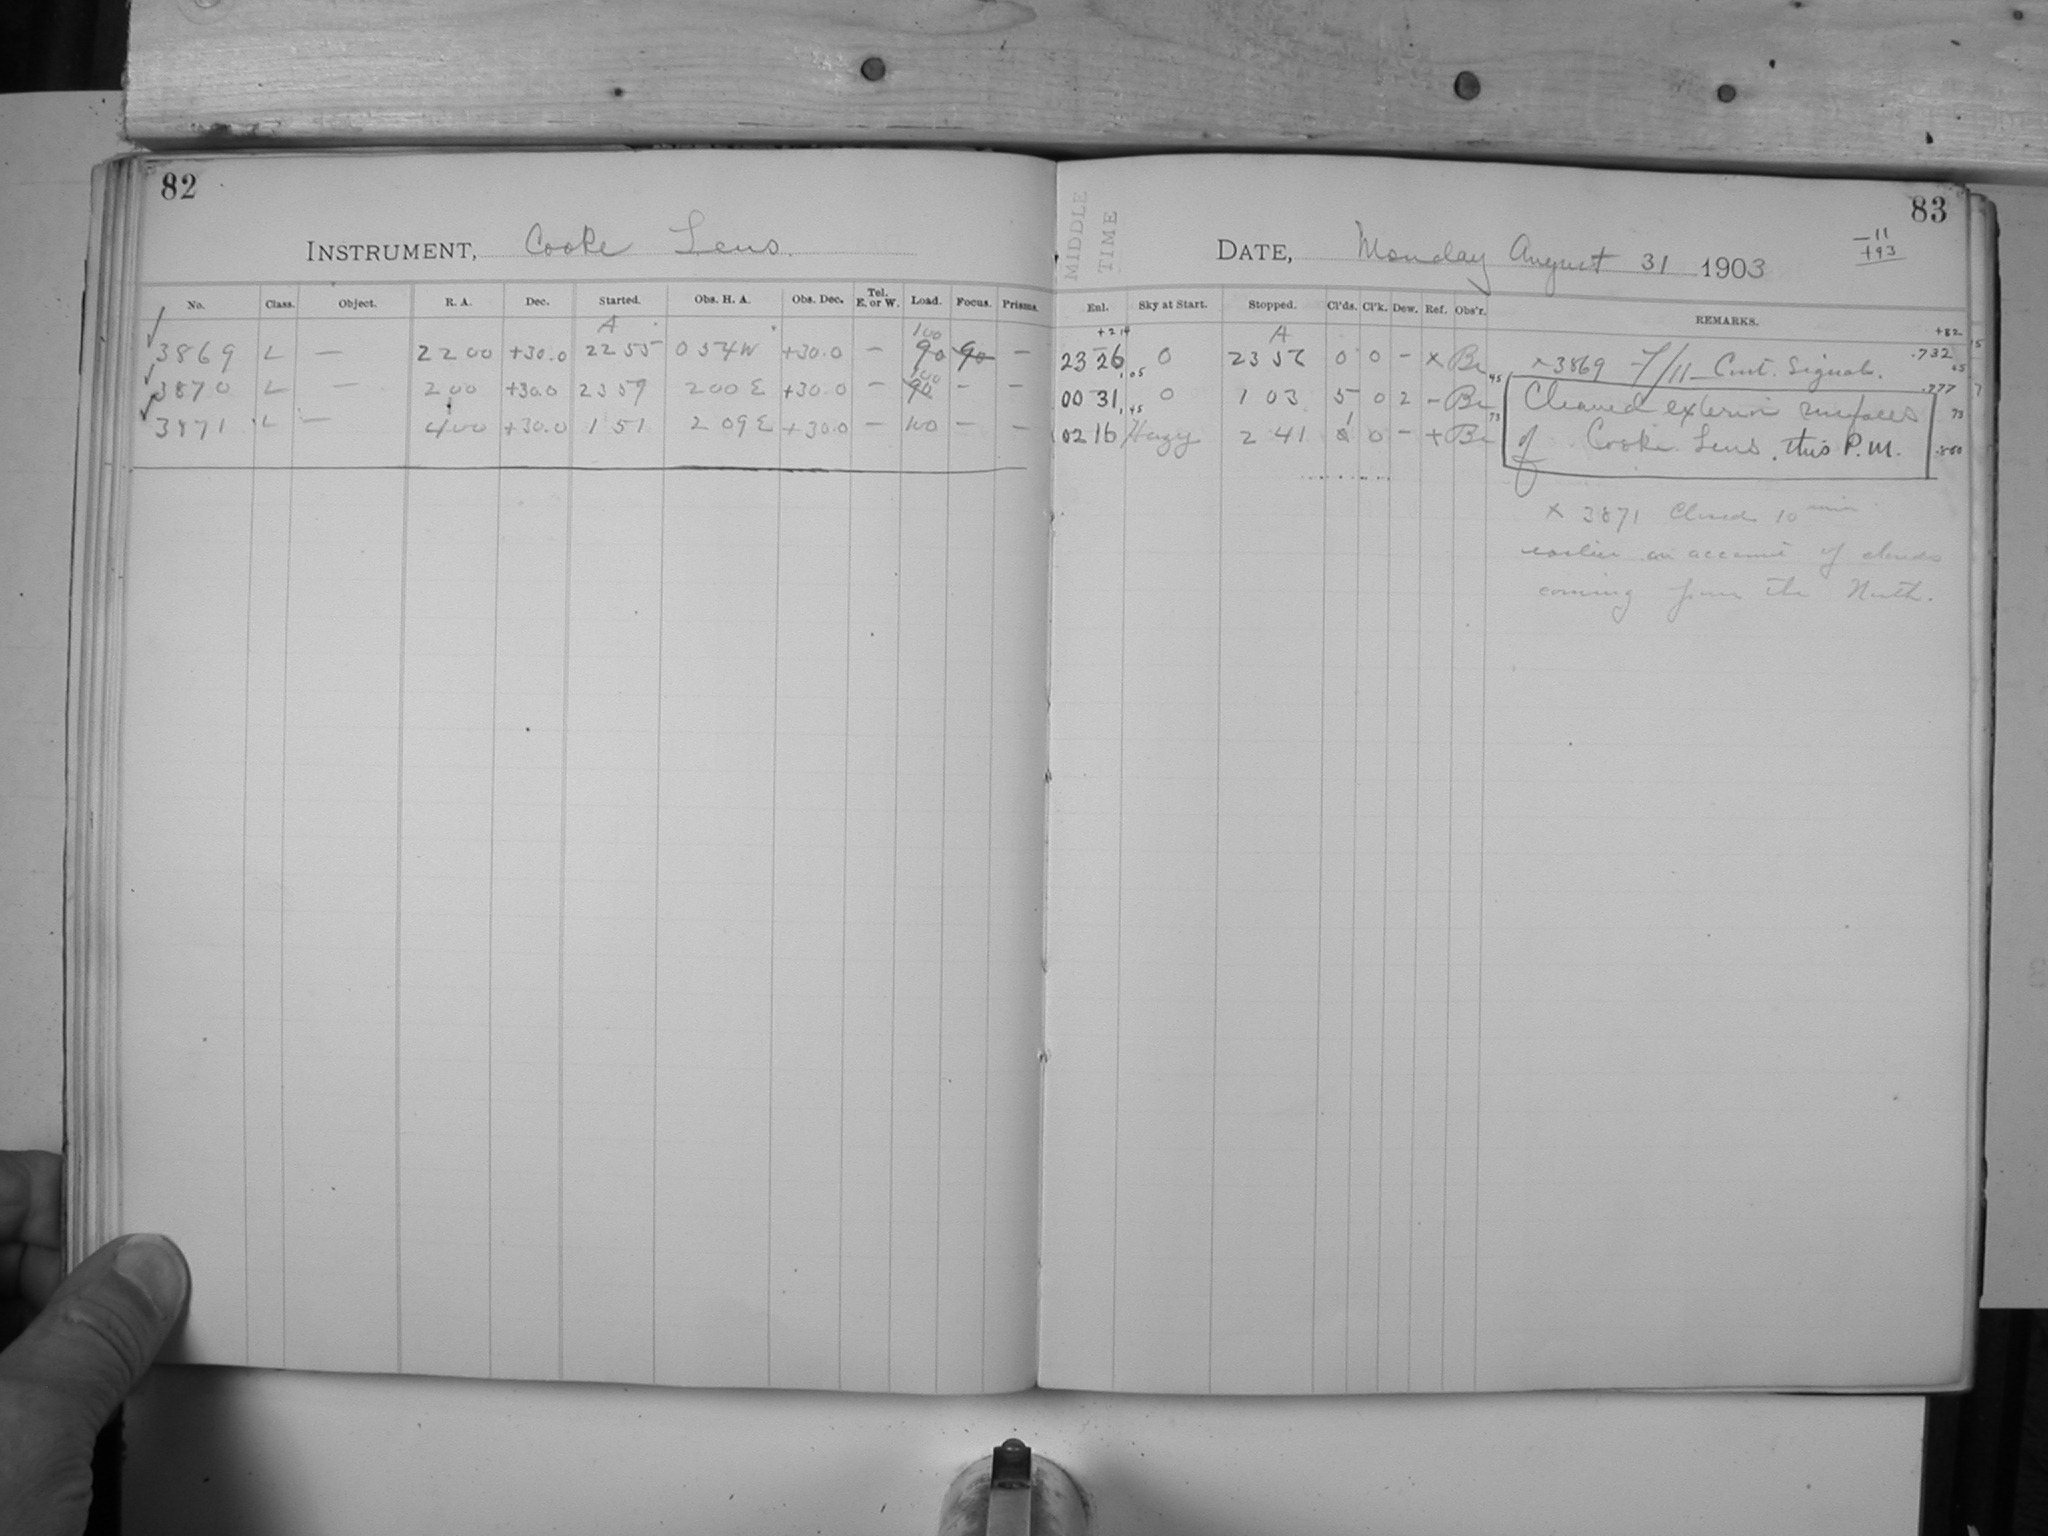 82
INSTRUMENT, Cooke Lens.
No. Class. Object. R. A. Dec. Started. Obs. H. A. Obs. Dec. Tel. E. or W. Load. Focus. Prisms.
A 100
3869 L — 22 00 +30.0 22 55 0 54 W +30.0 — 90 90 —
100
3870 L — 2 00 +30.0 23 59 2 00 E +30.0 — 90 — —
3871 L — 4 00 +30.0 1 51 2 09 E +30.0 — 100 — —
83
MIDDLE TIME
DATE, Monday August 31 1903
-11
+93
Enl. Sky at Start. Stopped. Cl'ds. Cl'k. Dew. Ref. Obs'r. REMARKS.
+214 A +82
23 26 .05 0 23 56 0 0 — x Br 45 x 3869 F/11 - Cont. Signals. .732
65
00 31 .45 0 1 03 5 0 2 — Br 73 Cleaned exterior surfaces .777
73
02 16 Hazy 2 41 1 0 — + Br of Cooke Lens, this P.M. .800
x 3871 Closed 10 min
earlier on account of clouds
coming from the North.